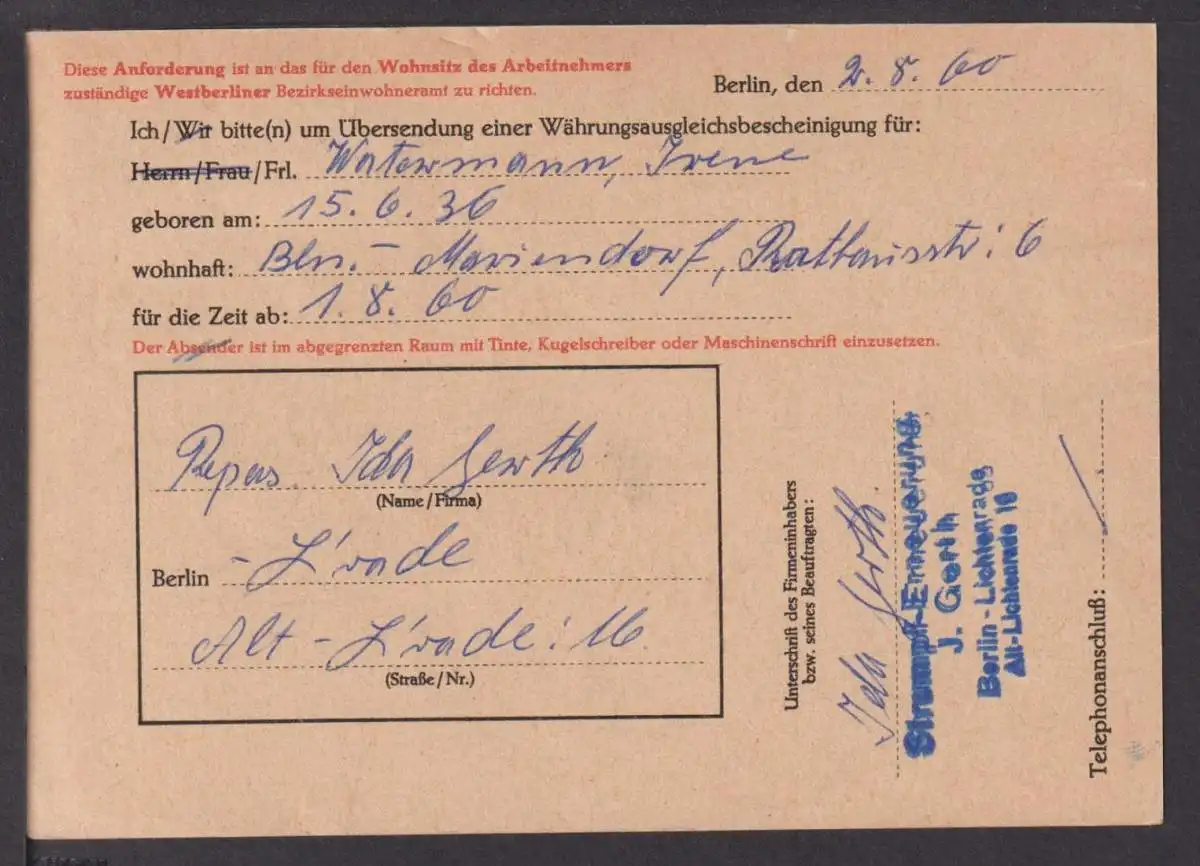 Diese Anforderung ist an das für den Wohnsitz des Arbeitnehmers
zuständige Westberliner Bezirkseinwohneramt zu richten.
Berlin, den 2. 8. 60
Ich/Wir bitte(n) um Übersendung einer Währungsausgleichsbescheinigung für:
Herrn/Frau/Frl. Watermann, Irene
geboren am: 15. 6. 36
wohnhaft: Bln. - Mariendorf, Rathausstr: 6
für die Zeit ab: 1. 8. 60
Der Absender ist im abgegrenzten Raum mit Tinte, Kugelschreiber oder Maschinenschrift einzusetzen.
Repas. Ida Gerth
(Name/Firma)
Berlin - L'rade
Alt - L'rade: 16
(Straße/Nr.)
Unterschrift des Firmeninhabers
bzw. seines Beauftragten:
Ida Gerth.
Strumpf-Erneuerung
J. Gerth
Berlin - Lichtenrade
Alt-Lichtenrade 16
Telephonanschluß: